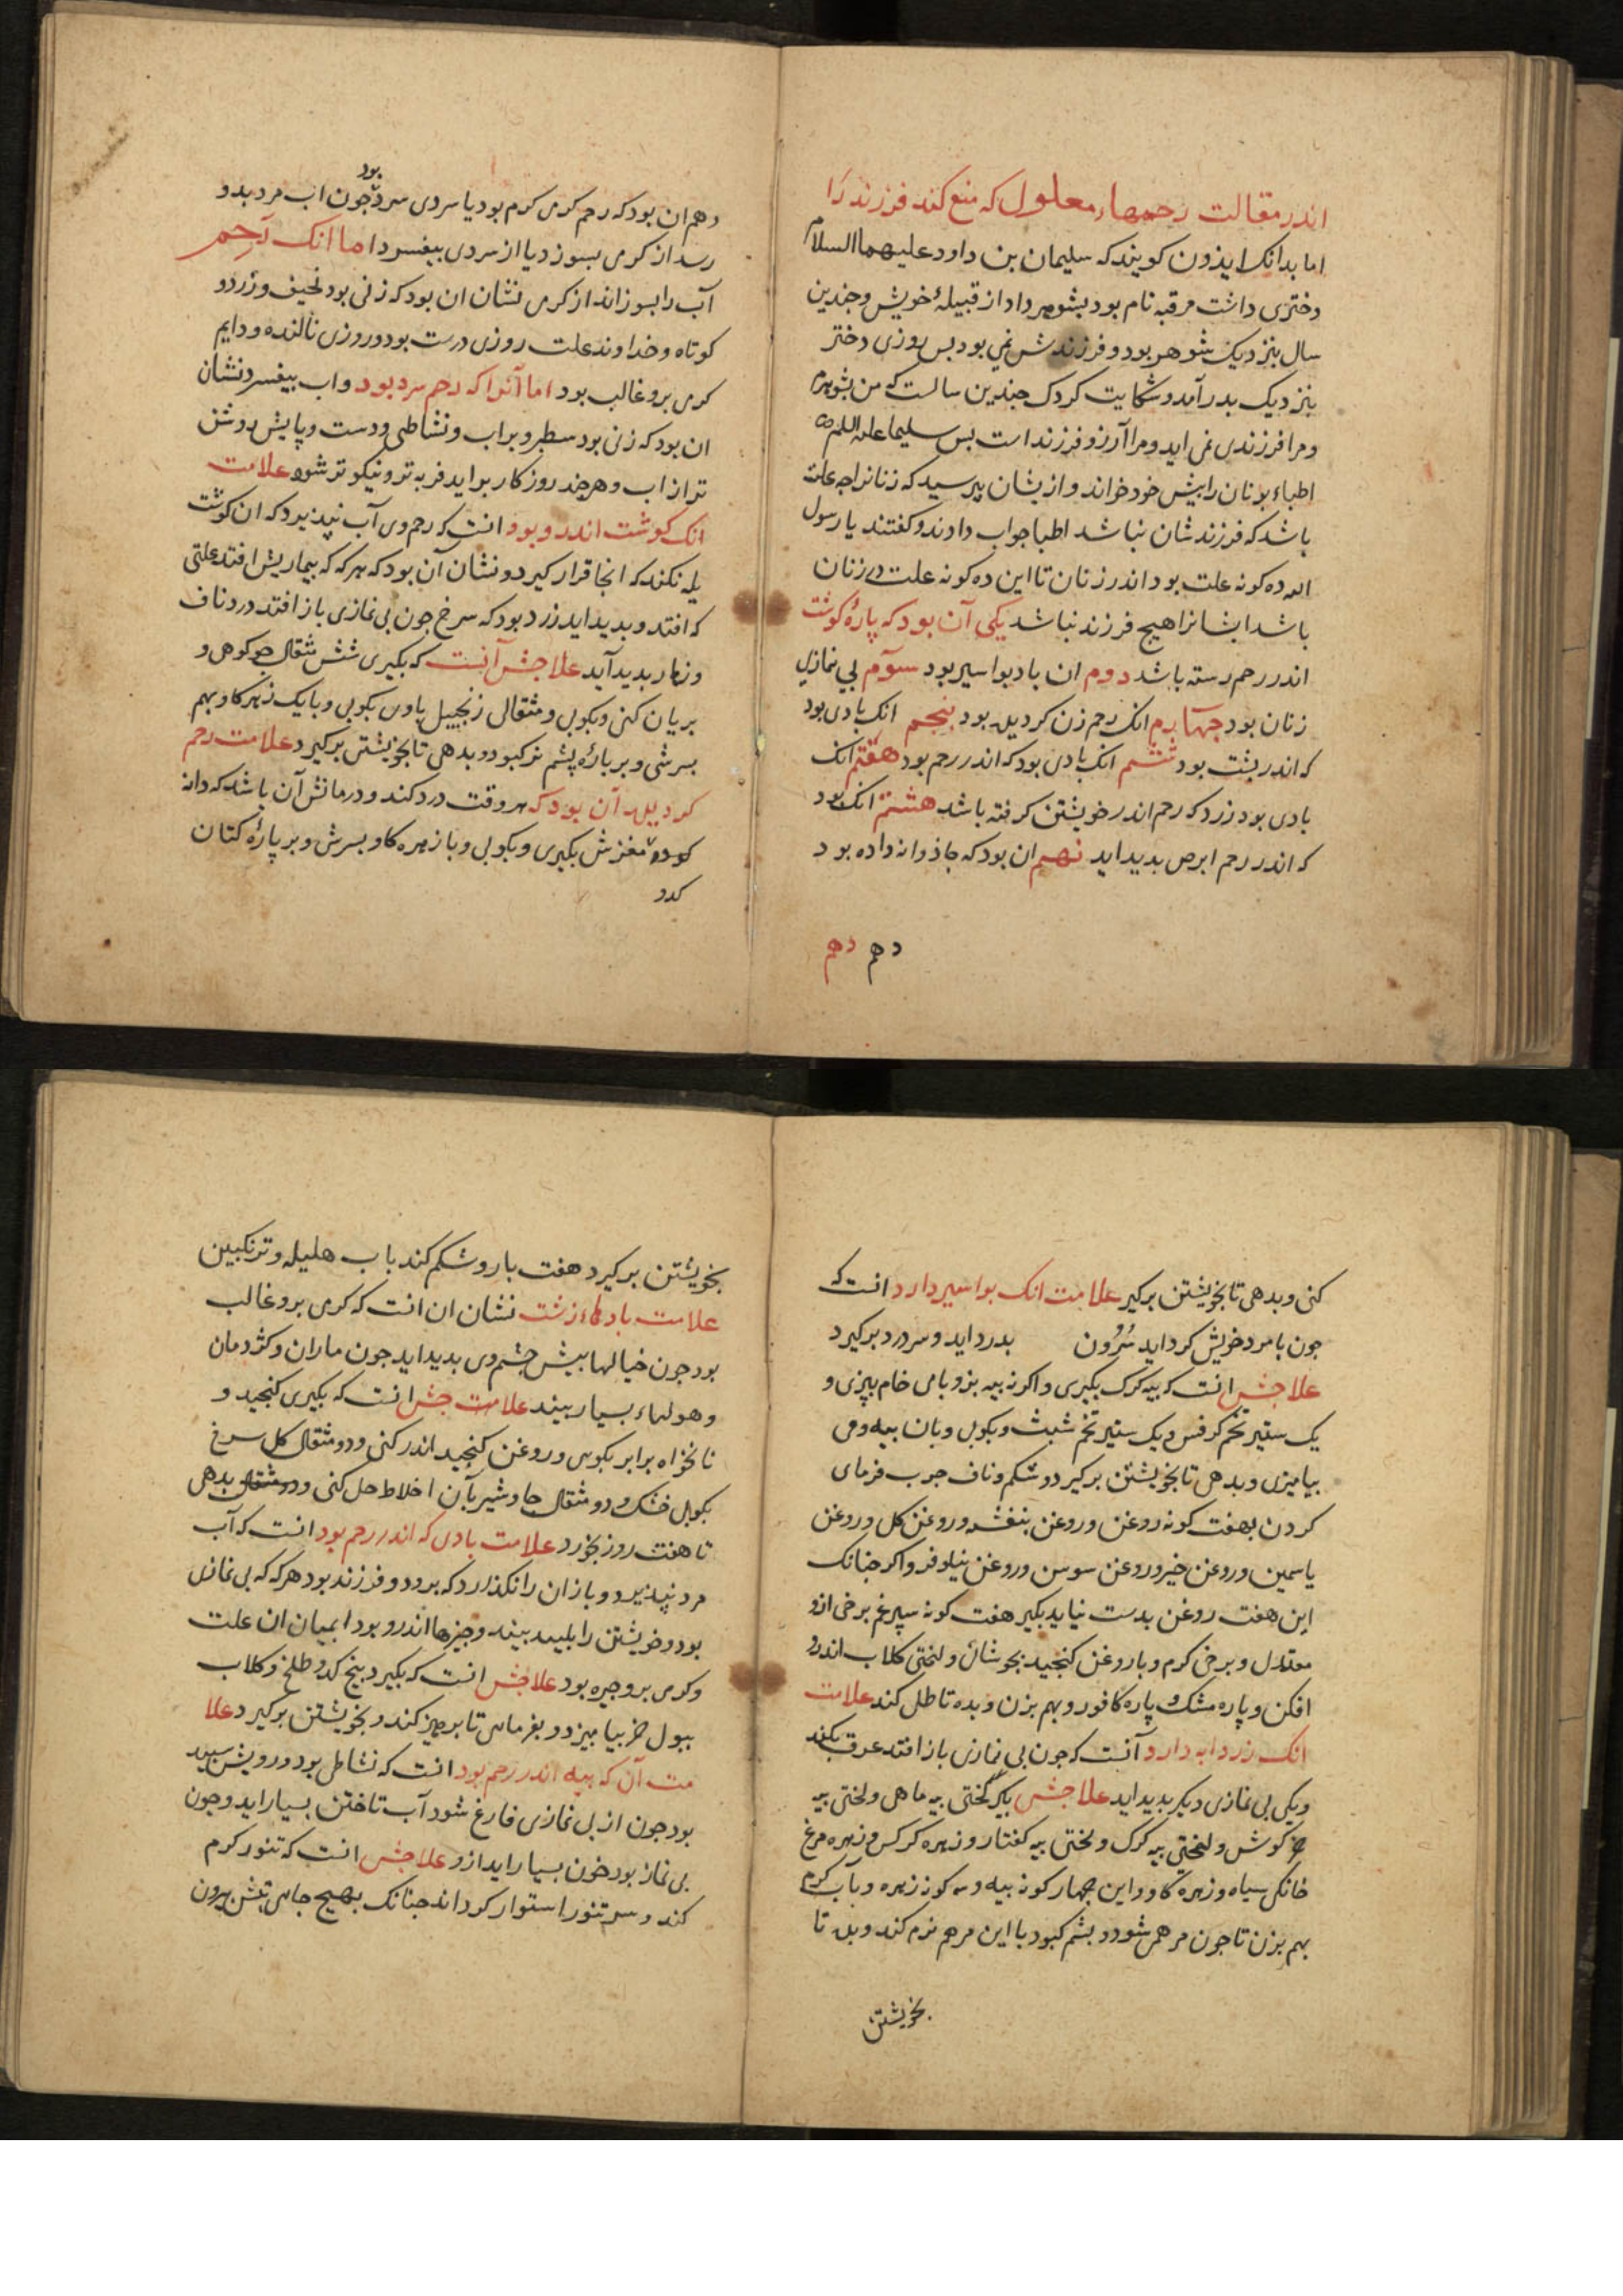 اندر مقالت رحمهاء معلول که منع کند فرزند را
اما بدانک ایذون کویند که سلیمان بن داود علیهما السلام
دختری داشت مرقبه نام بود بشوهر داد از قبیلهٔ خویش وجندین
سال بنزدیک شوهر بود و فرزندش نمی بود بس روزی دختر
بنزدیک بدر آمد و شکایت کرد ک جندین سالست که من بشوهرم
ومرا فرزندی نمی اید ومرا آرزو فرزند است بس سلیما علیه السلم
اطباء یونان را بیش خود خواند و ازیشان بپرسید که زنانرا جه علت
باشد که فرزندشان نباشد اطبا جواب دادند و کفتند یا رسول
الله ده کونه علت بود اندر زنان تا این ده کونه علت در زنان
باشد ایشانرا هیچ فرزند نباشد یکی آن بود که پارهٔ کوشت
اندر رحم رسته باشد دوم ان باد بواسیر بود سوم بی نمازی
زنان بود جهارم انک رحم زن کردیده بود بنجم انک بادی بود
که اندر بشت بود ششم انک بادی بود که اندر رحم بود هفتم انک
بادی بود زرد که رحم اندر خویشتن کرفته باشد هشتم انک بود
که اندر رحم ابرص بدید اید نهم ان بود که جاذوانه داده بود
دهم دهم
دهم ان بود که رحم کرمی کرم بود یا سردی سرد بود جون اب مرد بدو
رسد از کرمی بسوزد یا از سردی بیفسرد اما انک رحم
آب را بسوزاند از کرمی نشان ان بود که زنی بود نحیف و زرد و
کوتاه وخداوند علت روزی درست بود و روزی نالنده ودایم
کرمی برو غالب بود اما آنرا که رحم سرد بود واب بیفسرد نشان
ان بود که زنی بود سطبر وبراب ونشاطی ودست وپایش روشن
تر از اب وهر جند روزکار براید فربه تر ونیکو تر شود علامت
انک کوشت اندرو بود انست که رحم وی آب نپذیرد که ان کوشت
یله نکند که انجا قرار کیرد و نشان آن بود که هرکه که بیماریش افتد علتی
که افتد و بدید اید زرد بود که سرخ جون بی نمازی باز افتد درد ناف
وزهار بدید آید علاجش آنست که بکیری شش مثقال جو کوهی و
بریان کنی وبکوبی ومثقالی زنجبیل باوی بکوبی و با یک زهر کاو بهم
بسرشی و بر بارهٔ پشم نر کبود و بدهی تا بخویشتن برکیرد علامت رحم
کردیده آن بود که هر وقت درد کند و درمانش آن باشد که دانه
کدو مغزش بکیری و بکوبی وبا زهره کاو بسرش و بر پارهٔ کتان
کدو
کنی و بدهی تا بخویشتن برکیر علامت انک بواسیر دارد انست که
جون با مرد خویش کرد اید سُرُون بدرد اید وسر درد برکیرد
علاجش انست که بیه کرک بکیری و اکر نه بیه بز و بامی خام ببزی و
یک ستیر تخم کرفس ویک ستیر تخم شبث وبکوبی وبان بیه ومی
بیامیزی و بدهی تا بخویشتن برکیرد و شکم وناف جرب فرمای
کردن بهفت کونه روغن وروغن بنفشه وروغن کل وروغن
یاسمین وروغن خیر وروغن سوسن وروغن نیلوفر و اکر جنانک
این هفت روغن بدست نیاید بکیر هفت کونه سپرغم برخی ازو
معتدل وبرخی کرم و با روغن کنجید بجوشان و لختی کلاب اندرو
افکن و پاره مشک و پاره کافور وبهم بزن و بده تا طلی کند علامت
انک زردابه دارد آنست که جون بی نمازی باز افتد عرق بکند
ویکی بی نمازی دیکر بدید اید علاجش بکیر لختی بیه ماهی و لختی بیه
خرکوش ولختی بیه کرک و لختی بیه کفتار و زهره کرکس وزهره مرغ
خانکی سیاه وزهره کاو و این جهار کونه بیه وسه کونه زهره و باب کرم
بهم بزن تا جون مرهم شود و بشم کبود با این مرهم نرم کند و بده تا
بخویشتن
بخویشتن برکیرد هفت بار وشکم کند باب هلیله و ترنکبین
علامت بادهاء زشت نشان ان انست که کرمی برو غالب
بود جون خیالها بیش جشم وی بدید اید جون ماران و کژدمان
و هولهاء بسیار بیند علامت جش انست که بکیری کنجید و
نانخواه برابر بکوبی وروغن کنجید اندر کنی ودو مثقال کل سرخ
بکوبی خشک ودو مثقال جاوشیر بآن اخلاط حل کنی ودو مثقال بدهی
تا هفت روز بخورد علامت بادی که اندر رحم بود انست که آب
مرد نپذیرد و باز ان را نکذارد که برود و فرزند بود هرکه که بی نمازی
بود وخویشتن را بلید بیند وجیزها اندرو بود ابمیان ان علت
وکرمی برو جیره بود علاجش انست که بکیرد بیخ کدو طلخ وکلاب
ببول خر بیامیزد و بفرمایی تا برهیز کند و بخویشتن برکیرد علا
مت آن که بیه اندر رحم بود انست که نشاطی بود ورویش سبید
بود جون از بی نمازی فارغ شود آب تاختن بسیار اید وجون
بی نماز بود خون بسیار اید ازو علاجش انست که تنور کرم
کند وسر تنور استوار کرداند جنانک بهیچ جای تبش بیرون